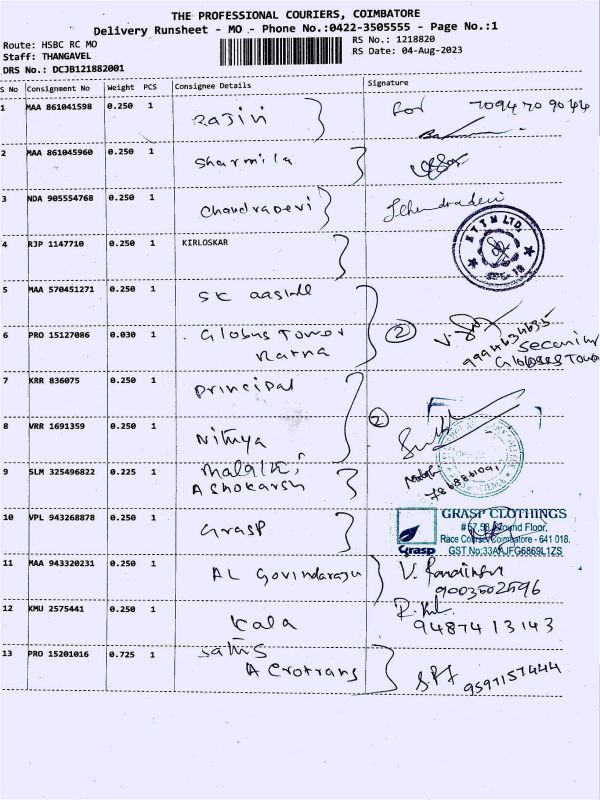 THE PROFESSIONAL COURIERS, COIMBATORE
Delivery Runsheet - MO - Phone No.:0422-3505555 - Page No.:1
Route: HSBC RC MO
Staff: THANGAVEL
DRS No.: DCJB121882001
RS No.: 1218820
RS Date: 04-Aug-2023
S No Consignment No Weight PCS Consignee Details Signature
1 MAA 861041598 0.250 1 Rajini for 7094709044
2 MAA 861045960 0.250 1 Sharmila
3 NDA 905554768 0.250 1 Chandradevi
4 RJP 1147710 0.250 1 KIRLOSKAR
5 MAA 570451271 0.250 1 SK
6 PRO 15127086 0.030 1 Globus Tower
Ratna
2
9994634635
Security
7 KRR 836075 0.250 1 Principal
8 VRR 1691359 0.250 1 Nithya
2
9 SLM 325496822 0.225 1
10 VPL 943268878 0.250 1 Grasp
Grasp
GRASP CLOTHINGS
Race Course, Coimbatore - 641 018.
GST No:33AAJFG6869L1ZS
11 MAA 943320231 0.250 1 AL Govindaraju V.
9003502596
12 KMU 2575441 0.250 1 Kala
9487413143
13 PRO 15201016 0.725 1 Sathis
Aerotrans
9597157444